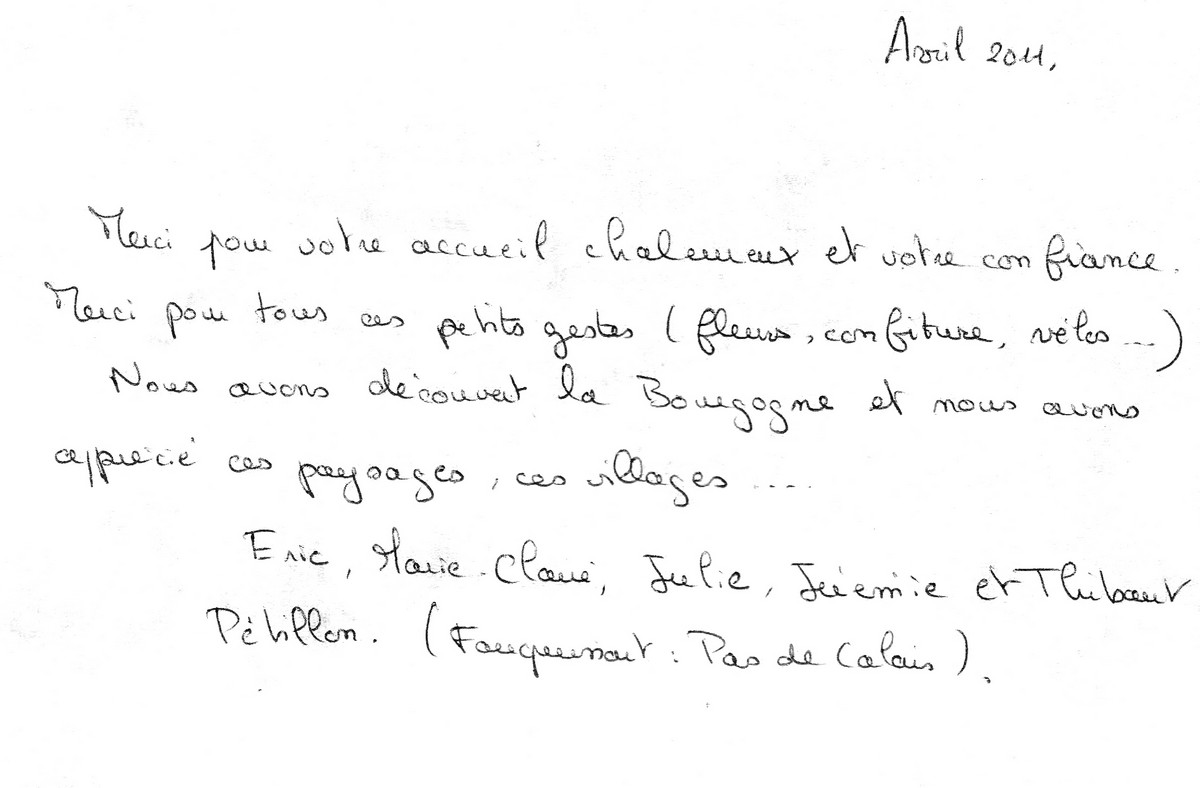 Avril 2011,
Merci pour votre accueil chaleureux et votre confiance.
Merci pour tous ces petits gestes (fleurs, confiture, vélos...)
Nous avons découvert la Bourgogne et nous avons
apprécié ces paysages, ces villages .....
Eric, Marie-Claire, Julie, Jérémie et Thibaut
Pétillon. (Fouquessart : Pas de Calais).